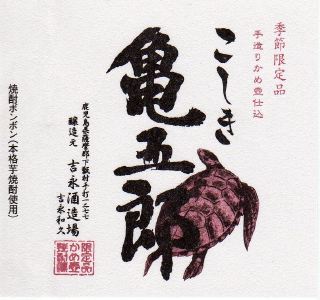 季節限定品
手造りかめ壺仕込
こしき
亀五郎
鹿児島県薩摩郡下甑村手打一二七七
醸造元 吉永酒造場
吉永和久
限定品
かめ壺
焼酎ボンボン(本格芋焼酎使用)